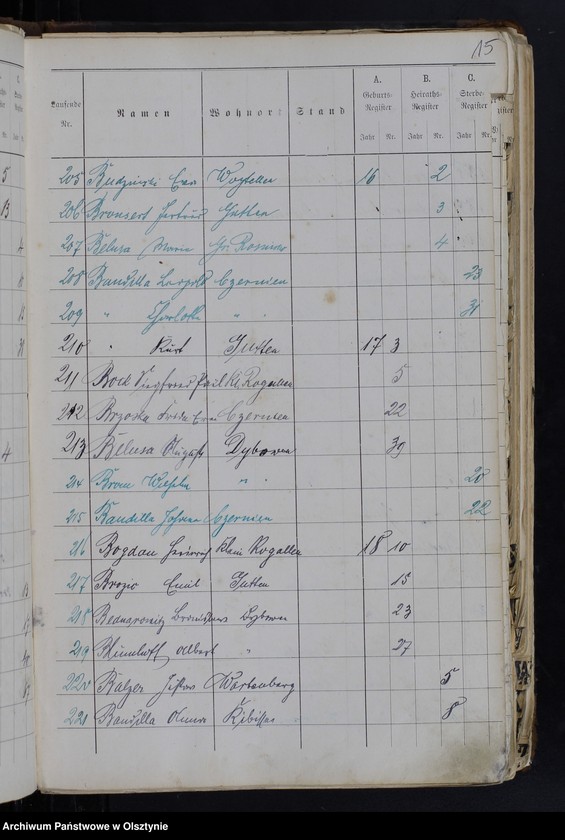 15
A. B. C.
Laufende Nr. Namen Wohnort Stand Geburts-Register Heiraths-Register Sterbe-Register
Jahr Nr. Jahr Nr. Jahr Nr.
205 Budzinski 16 2
206 Bronsert Gutten 3
207 Belusa Marie Gr. 4
208 Bandilla Leopold Czernien 23
209 " Charlotte " 31
210 " Kurt Gutten 17 3
211 Bock Siegfried Paul Kl. Rogallen 5
212 Brzoska Czernien 22
213 Belusa August Dybowen 39
214 Brom Wilhelm " 20
215 Bandilla Johann Czernien 22
216 Bogdan Heinrich Klein Rogallen 18 10
217 Brozio Emil Gutten 15
218 Dybowen 23
219 Albert " 27
220 Balzer Gustav Wartenberg 5
221 Bandilla Kibissen 8
Archiwum Państwowe w Olsztynie